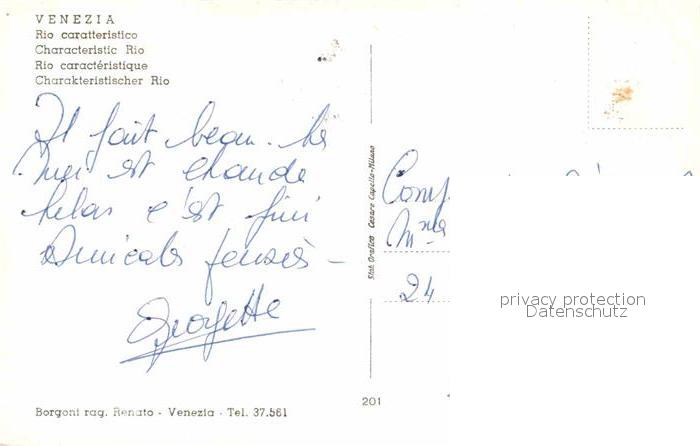 VENEZIA
Rio caratteristico
Characteristic Rio
Rio caractéristique
Charakteristischer Rio
Il fait beau. La
mer est chaude
helas c'est fini
Amicales pensées —
Georgette
Borgoni rag. Renato - Venezia - Tel. 37.561
Stab. Grafico Cesare Capello - Milano
201
Mme
24
privacy protection
Datenschutz